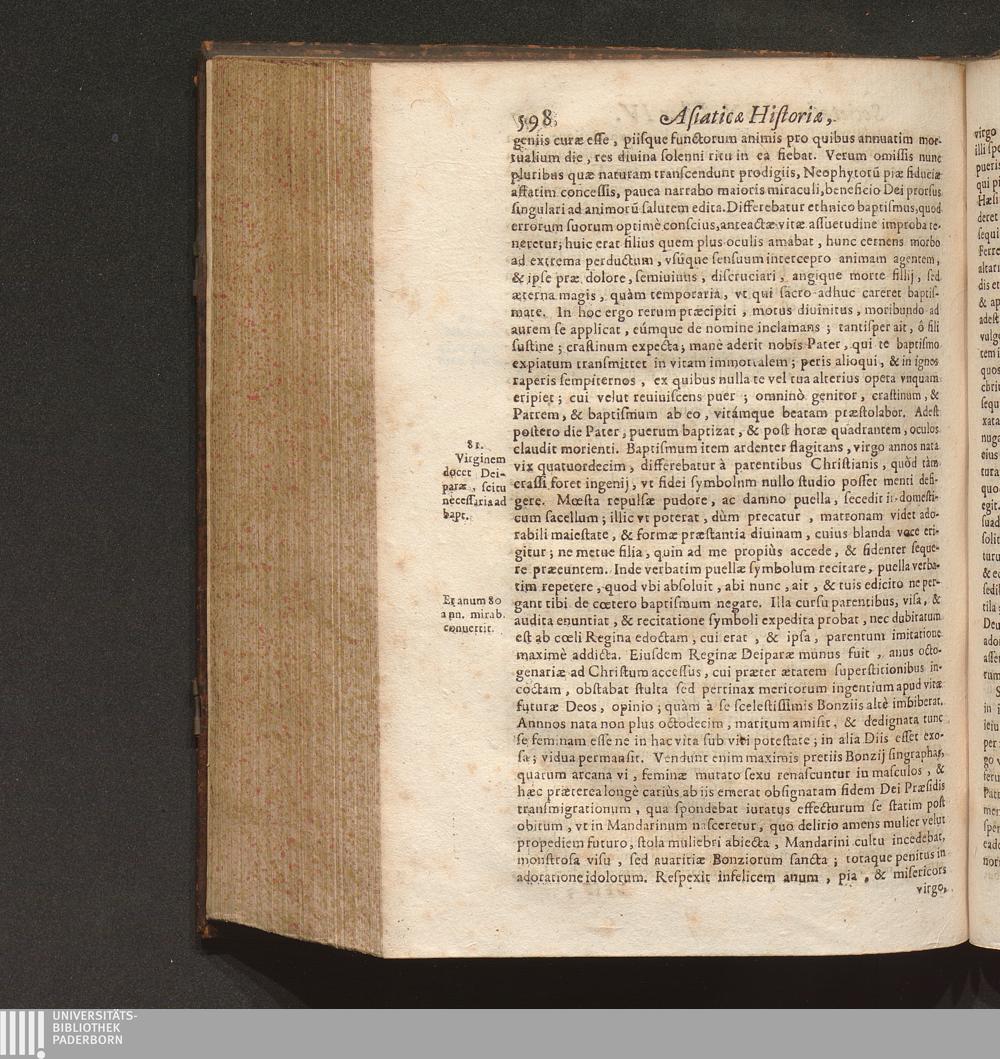 598 Asiaticæ Historiæ,
geniis curæ esse, piisque functorum animis pro quibus annuatim mor-
tualium die, res diuina solenni ritu in ea fiebat. Verum omissis nunc
pluribus quæ naturam transcendunt prodigiis, Neophytorũ piæ fiduciæ
affatim concessis, pauca narrabo maioris miraculi, beneficio Dei prorsus
singulari ad animorũ salutem edita. Differebatur ethnico baptismus, quod
errorum suorum optimè conscius, anteactæ vitæ assuetudine improba te-
neretur; huic erat filius quem plus oculis amabat, hunc cernens morbo
ad extrema perductum, vsúque sensuum intercepro animam agentem,
& ipse præ dolore, semiuiuus, discruciari, angique morte filij, sed
æterna magis, quàm temporaria, vt qui sacro adhuc careret baptis-
mate. In hoc ergo rerum præcipiti, motus diuinitus, moribundo ad
aurem se applicat, eúmque de nomine inclamans; tantisper ait, ô fili
sustine; crastinum expecta; manè aderit nobis Pater, qui te baptismo
expiatum transmittet in vitam immortalem; peris alioqui, & in ignes
raperis sempiternos, ex quibus nulla te vel tua alterius opera vnquam
eripiet; cui velut reuiuiscens puer; omninò genitor, crastinum, &
Patrem, & baptismum ab eo, vitámque beatam præstolabor. Adest
postero die Pater, puerum baptizat, & post horæ quadrantem, oculos
claudit morienti. Baptismum item ardenter flagitans, virgo annos nata
vix quatuordecim, differebatur à parentibus Christianis, quòd tàm
crassi foret ingenij, vt fidei symbolum nullo studio posset menti defi-
gere. Mœsta repulsæ pudore, ac damno puella, secedit in domesti-
cum sacellum; illic vt poterat, dùm precatur, matronam videt ado-
rabili maiestate, & formæ præstantia diuinam, cuius blanda voce eri-
gitur; ne metue filia, quin ad me propiùs accede, & fidenter seque-
re præeuntem. Inde verbatim puellæ symbolum recitare, puella verba-
tim repetere, quod vbi absoluit, abi nunc, ait, & tuis edicito ne per-
gant tibi de cœtero baptismum negare. Illa cursu parentibus, visa, &
audita enuntiat, & recitatione symboli expedita probat, nec dubitatum
est ab cœli Regina edoctam, cui erat, & ipsa, parentum imitatione
maximè addicta. Eiusdem Reginæ Deiparæ munus fuit, anus octo-
genariæ ad Christum accessus, cui præter ætatem superstitionibus in-
coctam, obstabat stulta sed pertinax meritorum ingentium apud vitæ
futuræ Deos, opinio; quàm à se scelestissimis Bonziis altè imbiberat.
Annnos nata non plus octodecim, maritum amisit, & dedignata tunc
se feminam esse ne in hac vita sub viri potestate; in alia Diis esset exo-
sa; vidua permansit. Vendunt enim maximis pretiis Bonzij singraphas,
quarum arcana vi, feminæ mutato sexu renascuntur in masculos, &
hæc præterea longè cariùs ab iis emerat obsignatam fidem Dei Præsidis
transmigrationum, qua spondebat iuratus effecturum se statim post
obitum, vt in Mandarinum nasceretur, quo delirio amens mulier velut
propediem futuro, stola muliebri abiecta, Mandarini cultu incedebat,
monstrosa visu, sed auaritiæ Bonziorum sancta; totaque penitus in
adoratione idolorum. Respexit infelicem anum, pia, & misericors
virgo,
81.
Virginem
docet Dei-
para, scitu
necessaria ad
bapt.
Et anum 80
ann. mirab.
conuertit.
UNIVERSITÄTS-
BIBLIOTHEK
PADERBORN